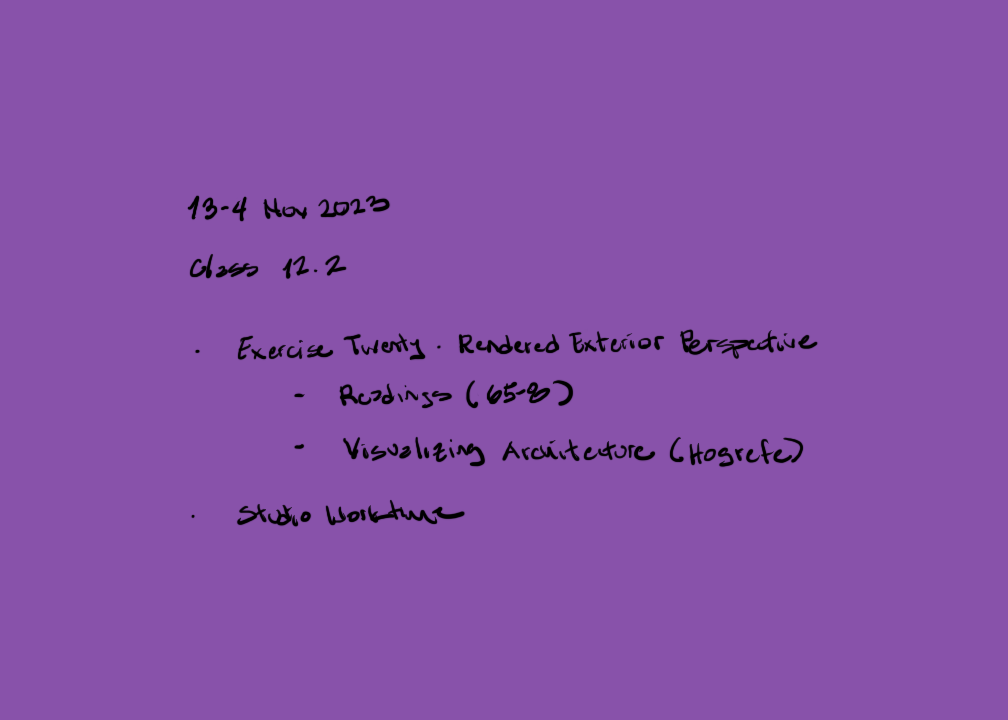 13-4 Nov 2023
Class 12.2
· Exercise Twenty · Rendered Exterior Perspective
- Readings (65-8)
- Visualizing Architecture (Hogrefe)
· Studio Worktime